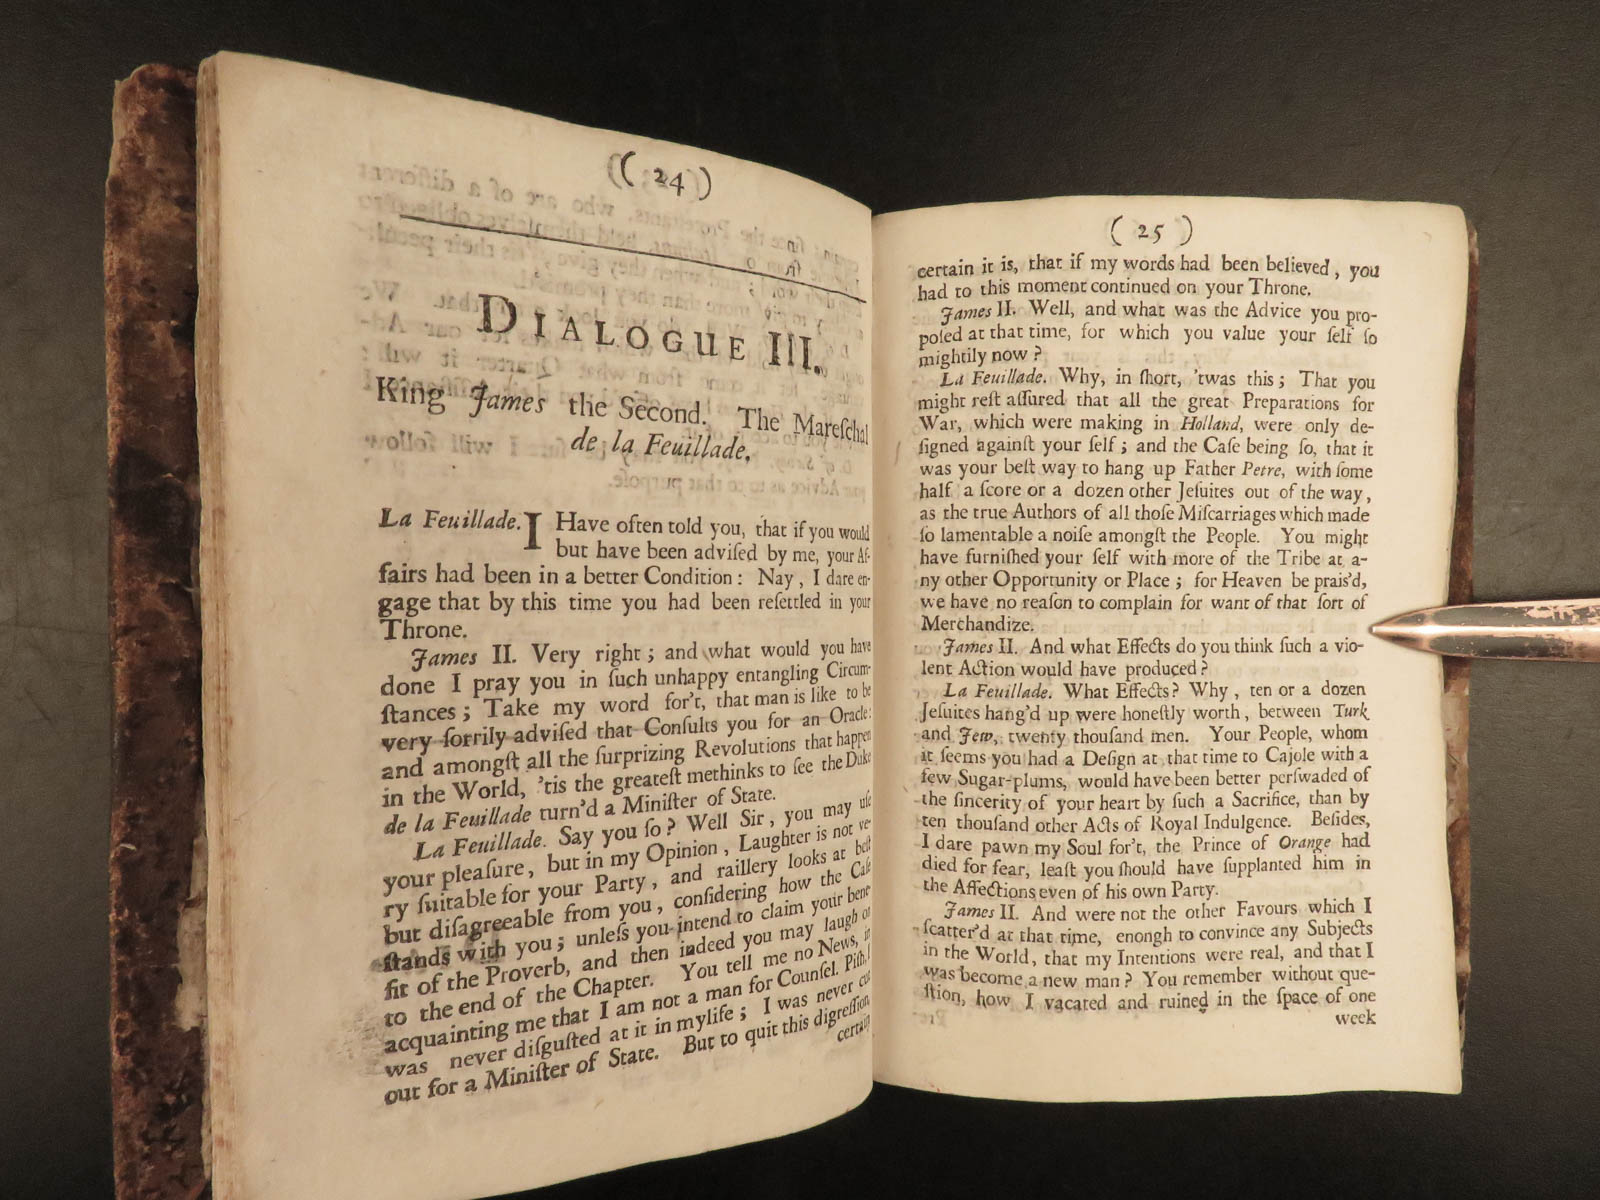 ( 24 )
DIALOGUE III.
King James the Second. The Mareſchal
de la Feuillade.
La Feuillade. I Have often told you, that if you would
but have been adviſed by me, your Af-
fairs had been in a better Condition: Nay, I dare en-
gage that by this time you had been reſettled in your
Throne.
James II. Very right; and what would you have
done I pray you in ſuch unhappy entangling Circum-
ſtances; Take my word for't, that man is like to be
very ſorrily adviſed that Conſults you for an Oracle:
and amongſt all the ſurprizing Revolutions that happen
in the World, 'tis the greateſt methinks to ſee the Duke
de la Feuillade turn'd a Miniſter of State.
La Feuillade. Say you ſo? Well Sir, you may uſe
your pleaſure, but in my Opinion, Laughter is not ve-
ry ſuitable for your Party, and raillery looks at beſt
but diſagreeable from you, conſidering how the Caſe
ſtands with you; unleſs you intend to claim your bene-
fit of the Proverb, and then indeed you may laugh on
to the end of the Chapter. You tell me no News, in
acquainting me that I am not a man for Counſel. Piſh, I
was never diſguſted at it in my life; I was never cut
out for a Miniſter of State. But to quit this digreſſion,
certain
( 25 )
certain it is, that if my words had been believed, you
had to this moment continued on your Throne.
James II. Well, and what was the Advice you pro-
poſed at that time, for which you value your ſelf ſo
mightily now?
La Feuillade. Why, in ſhort, 'twas this; That you
might reſt aſſured that all the great Preparations for
War, which were making in Holland, were only de-
ſigned againſt your ſelf; and the Caſe being ſo, that it
was your beſt way to hang up Father Petre, with ſome
half a ſcore or a dozen other Jeſuites out of the way,
as the true Authors of all thoſe Miſcarriages which made
ſo lamentable a noiſe amongſt the People. You might
have furniſhed your ſelf with more of the Tribe at a-
ny other Opportunity or Place; for Heaven be prais'd,
we have no reaſon to complain for want of that ſort of
Merchandize.
James II. And what Effects do you think ſuch a vio-
lent Action would have produced?
La Feuillade. What Effects? Why, ten or a dozen
Jeſuites hang'd up were honeſtly worth, between Turk
and Jew, twenty thouſand men. Your People, whom
it ſeems you had a Deſign at that time to Cajole with a
few Sugar-plums, would have been better perſwaded of
the ſincerity of your heart by ſuch a Sacrifice, than by
ten thouſand other Acts of Royal Indulgence. Beſides,
I dare pawn my Soul for't, the Prince of Orange had
died for fear, leaſt you ſhould have ſupplanted him in
the Affections even of his own Party.
James II. And were not the other Favours which I
ſcatter'd at that time, enongh to convince any Subjects
in the World, that my Intentions were real, and that I
was become a new man? You remember without que-
ſtion, how I vacated and ruined in the ſpace of one
week